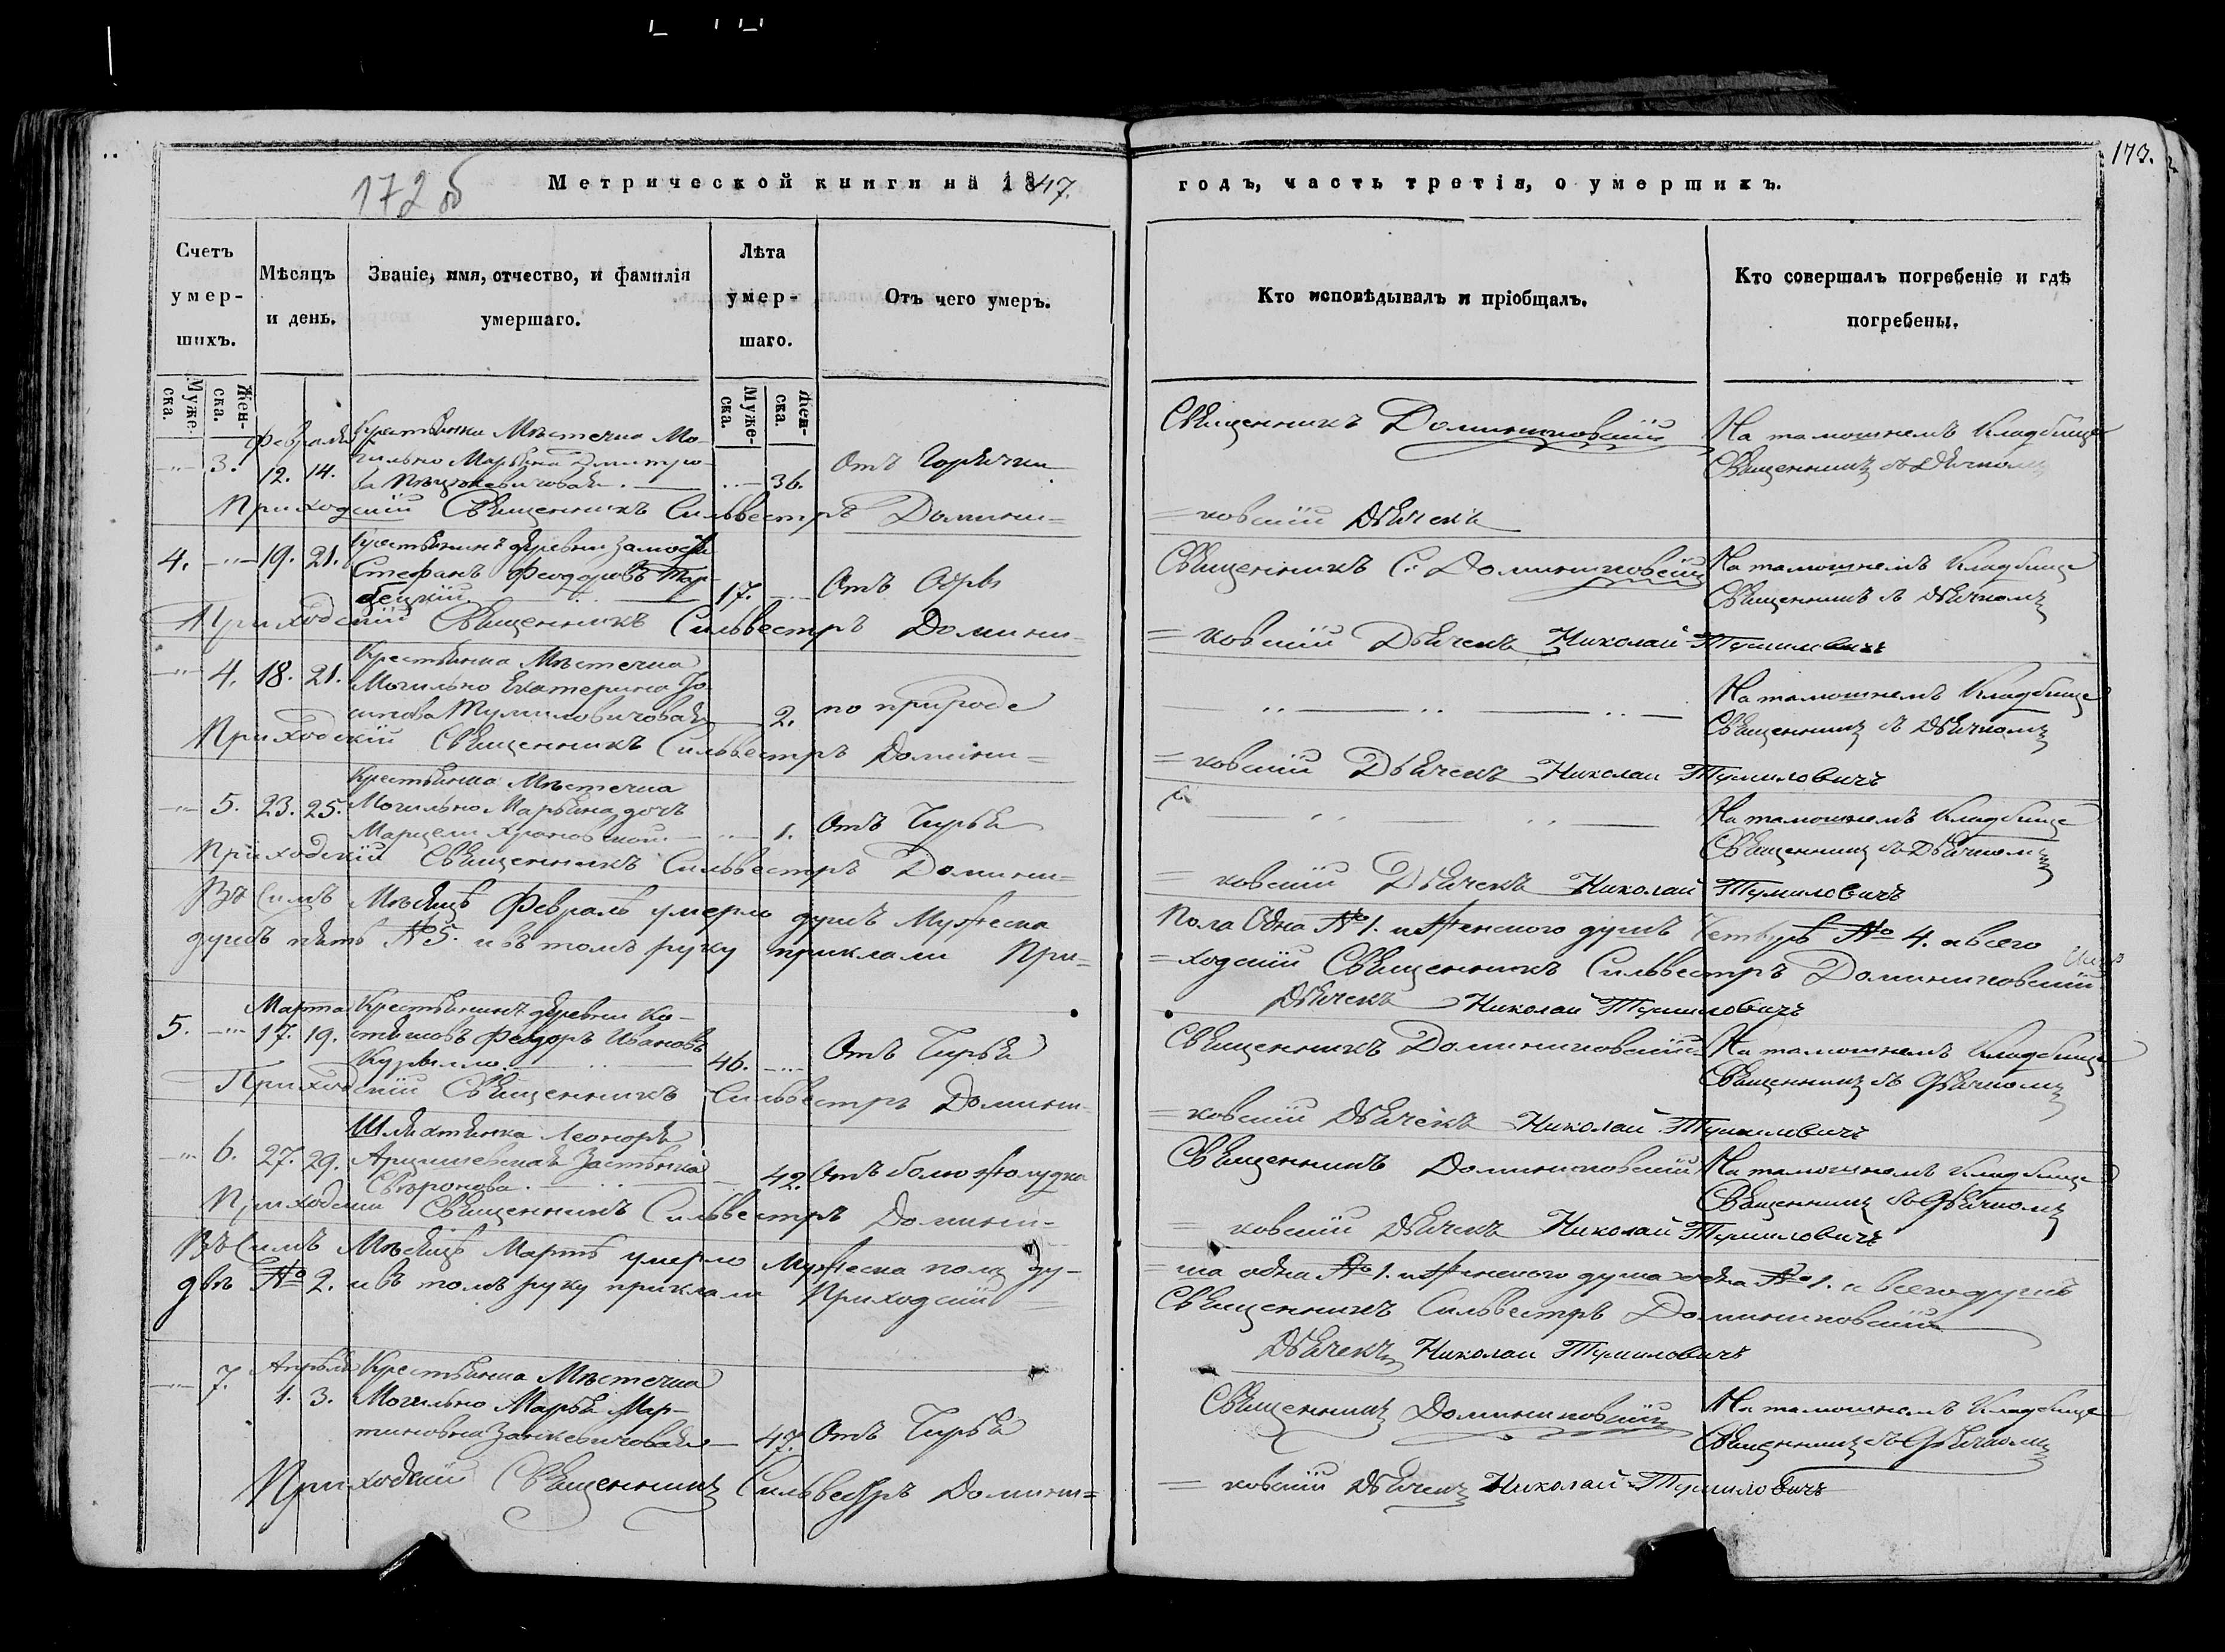 172 об
173.
Метрической книги на 1847.
годъ, часть третія, о умершихъ.
Счетъ умер-шихъ.
Мѣсяцъ и день.
Званіе, имя, отчество, и фамилія умершаго.
Лѣта умер-шаго.
Отъ чего умеръ.
Кто исповѣдывалъ и пріобщалъ.
Кто совершалъ погребеніе и гдѣ погребены.
Муже-ска.
Жен-ска.
Муже-ска.
Жен-ска.
Февраля
Крестьянка Мѣстечка Мо-
3. 12. 14. гильно Марьяна Дмитро-
ва 36. Отъ Горячки
Священникъ Доминиковскій
На тамошнемъ Кладбище
Священникъ съ Дьячкомъ
Приходскій Священникъ Сильвестръ Домини=
=ковскій Дьячекъ
4. 19. 21. Крестьянинъ деревни Замостья
Стефанъ Феодоровъ
17. Отъ
Священникъ С. Доминиковскій
На тамошнемъ Кладбище
Священникъ съ Дьячкомъ
Приходскій Священникъ Сильвестръ Домини=
=ковскій Дьячекъ Николай Тумиловичъ
4. 18. 21. Крестьянка Мѣстечка
Могильно Екатерина
Тумиловичовая 2. по природе
На тамошнемъ Кладбище
Священникъ съ Дьячкомъ
Приходскій Священникъ Сильвестръ Домини=
=ковскій Дьячекъ Николай Тумиловичъ
5. 23. 25. Крестьянка Мѣстечка
Могильно Марьяна дочь
Марцели 1. Отъ Чирья
На тамошнемъ Кладбище
Священникъ съ Дьячкомъ
Приходскій Священникъ Сильвестръ Домини=
=ковскій Дьячекъ Николай Тумиловичъ
Въ Симъ Мѣсяцѣ Февралѣ умерло душъ Мужеска
пола Одна №1. и Женского душъ Четыре №4. а всего
душъ пять №5. и въ томъ руку приклали При=
=ходскій Священникъ Сильвестръ Доминиковскій
Дьячекъ Николай Тумиловичъ
Марта
5. 17. 19. Крестьянинъ деревни Ко-
Феодоръ Ивановъ
46. Отъ Чирья
Священникъ Доминиковскій
На тамошнемъ Кладбище
Священникъ съ Дьячкомъ
Приходскій Священникъ Сильвестръ Домини=
=ковскій Дьячекъ Николай Тумиловичъ
6. 27. 29. Шляхтянка Леонора
Застѣнка
42. Отъ болю жолудка
Священникъ Доминиковскій
На тамошнемъ Кладбище
Священникъ съ Дьячкомъ
Приходскій Священникъ Сильвестръ Домини-
=ковскій Дьячекъ Николай Тумиловичъ
Въ Симъ Мѣсяцѣ Мартѣ умерло Мужеска пола ду-
=ша одна №1. и Женского душа одна №1. а всего душъ
двѣ №2. и въ томъ руку приклали Приходскій
Священникъ Сильвестръ Доминиковскій
Дьячекъ Николай Тумиловичъ
Апрѣля
7. 1. 3. Крестьянка Мѣстечка
Могильно Марья Мар-
тиновна Занкевичовая 47. Отъ Чирья
Священникъ Доминиковскій
На тамошнемъ Кладбище
Священникъ съ Дьячкомъ
Приходскій Священникъ Сильвестръ Домини=
=ковскій Дьячекъ Николай Тумиловичъ